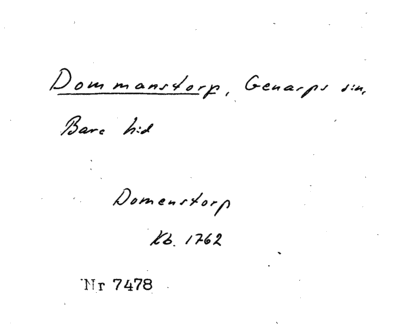 Dommanstorp, Genarps sn,
Bare hd
Domenstorp
Kb. 1762
Nr 7478